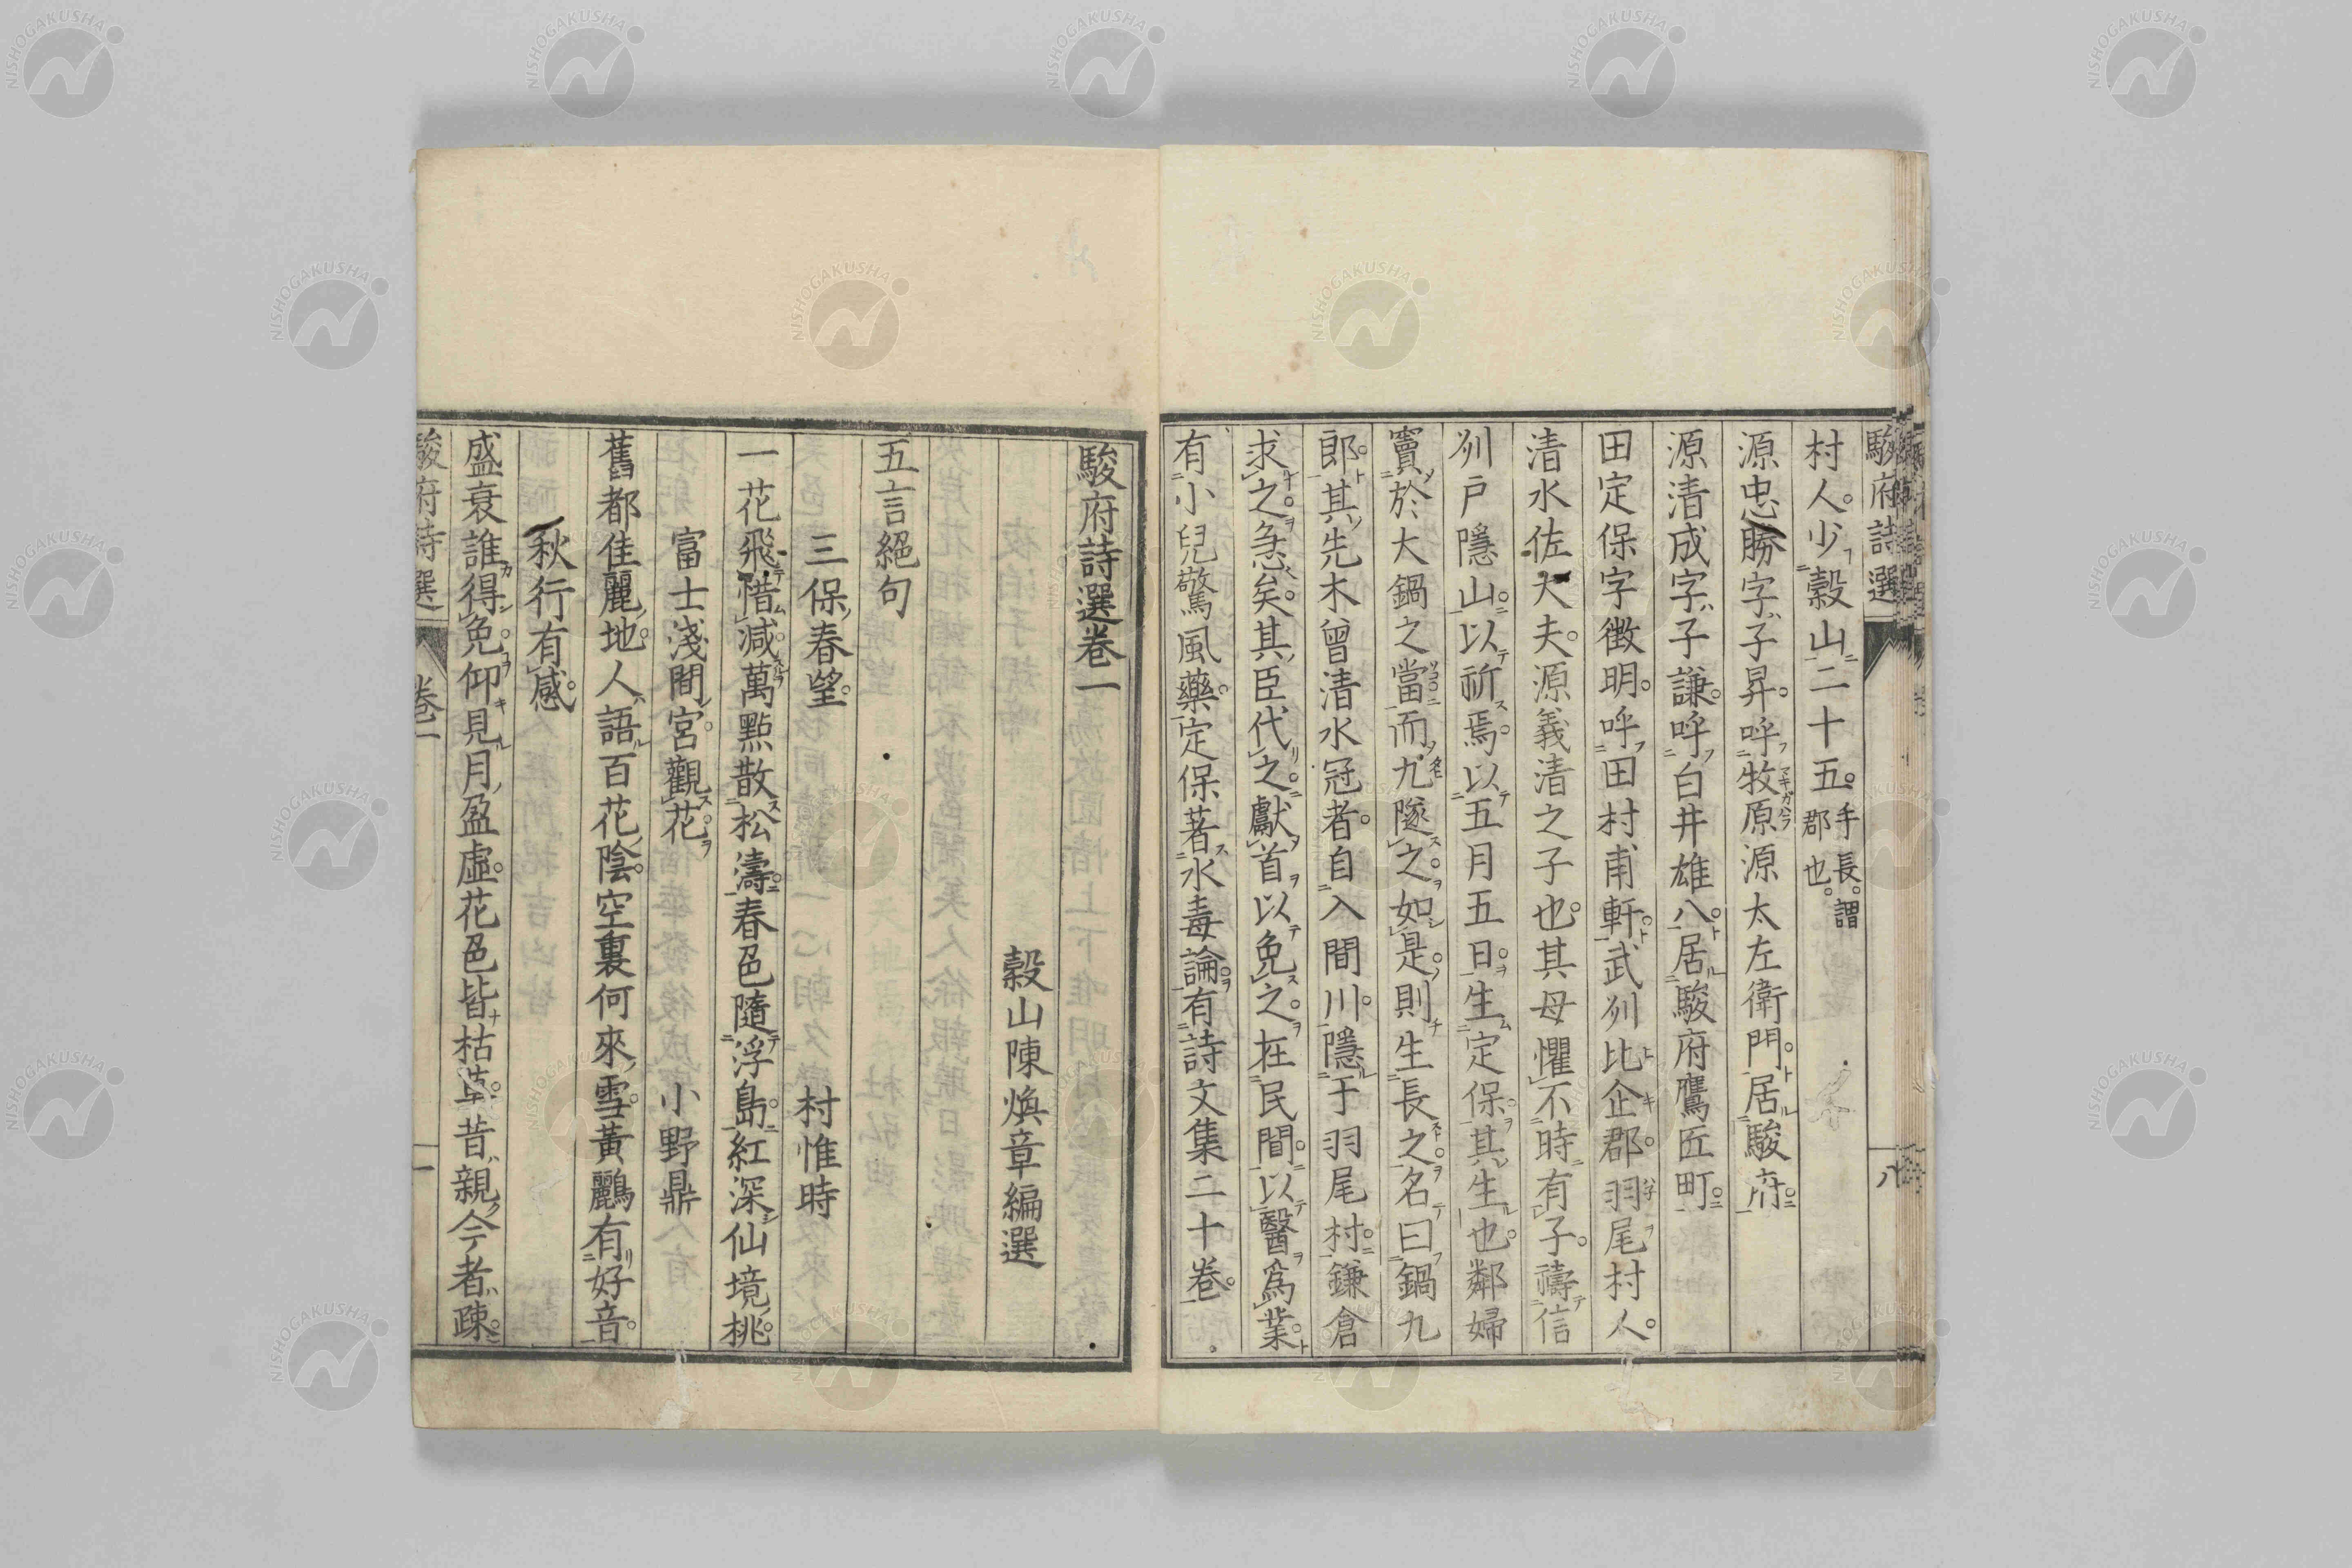 駿府詩選
八
村人。少穀山二十五。手長。謂郡也。
源忠勝字子昇。呼牧原源太左衛門。居駿府。
源清成字子謙。呼白井雄八。居駿府鷹匠町。
田定保字徴明。呼田村甫軒。武州比企郡。羽尾村人。
清水佐大夫。源義清之子也。其母懼不時有子。禱信
州戸隱山。以祈焉。以五月五日。生定保。其生也。鄰婦
竇於大鍋之當而九墜之。如是。則生長之。名曰鍋九
郎。其先木曾清水冠者。自入間川。隱于羽尾村。鎌倉
求之。急矣。其臣代之。獻首以免之。在民間。以醫爲業。
有小兒驚風藥。定保著水毒論。有詩文集二十卷。
駿府詩選卷一
穀山陳煥章編選
五言絕句
三保春望。
村惟時
一花飛惜減。萬點散松濤。春色隨浮島。紅深仙境桃。
富士淺間宮觀花。
小野鼎
舊都佳麗地。人語百花陰。空裏何來雪。黃鸝有好音。
秋行有感。
盛衰誰得免。仰見月盈虛。花色皆枯草。昔親今者疎。
駿府詩選
卷一
一
NISHOGAKUSHA